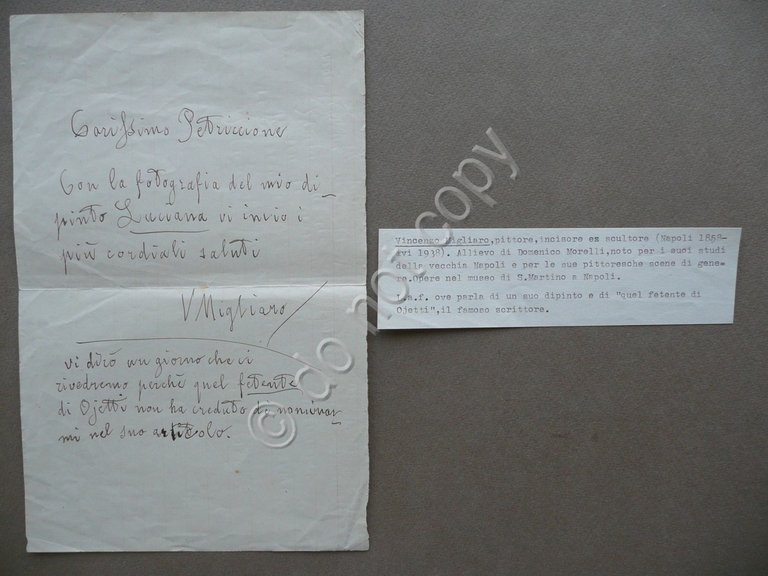 Carissimo Petriccione
Con la fotografia del mio di-
pinto Luciana vi invio i
più cordiali saluti
V Migliaro
vi dirò un giorno che ci
rivedremo perchè quel fetente
di Ojetti non ha creduto di nominar-
mi nel suo articolo.
Vincenzo Migliaro,pittore,incisore ez scultore (Napoli 1858-
ivi 1938). Allievo di Domenico Morelli,noto per i suoi studi
della vecchia Napoli e per le sue pittoresche scene di gene-
re.Opere nel museo di S.Martino a Napoli.
L.a.f. ove parla di un suo dipinto e di "quel fetente di
Ojetti",il famoso scrittore.
© do not copy